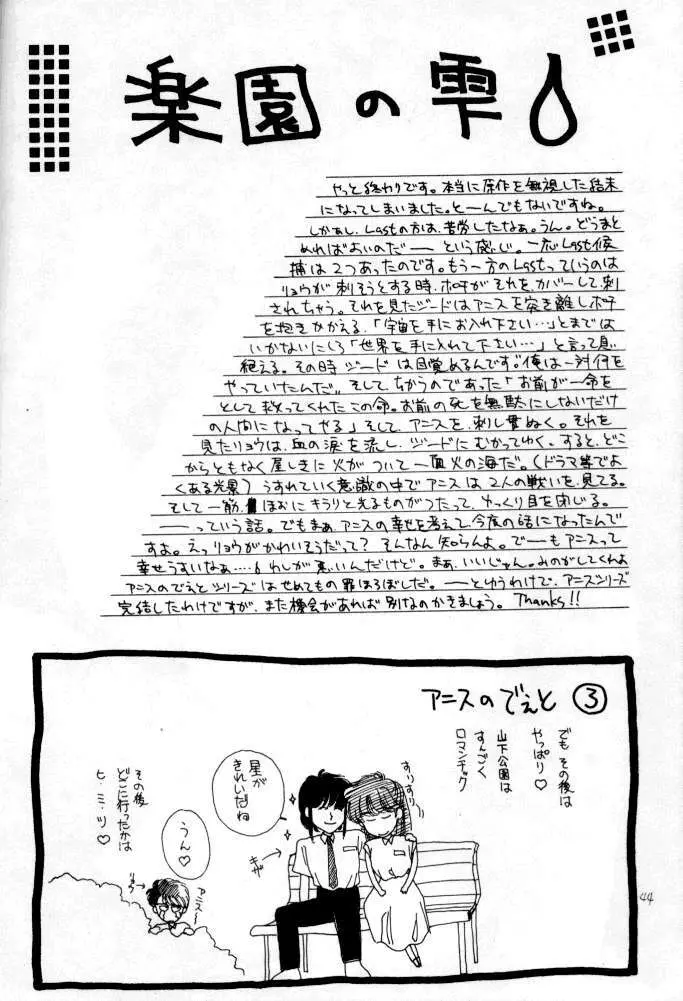 楽園の雫
やっと終わりです。本当に原作を無視した結末
になってしまいました。とーんでもないですね。
しかぁし、Lastの方は、苦労したなぁ。うん。どうまと
めればよいのだ── という感じ。一応Last候
補は2つあったのです。もう一方のLastっていうのは
リョウが刺そうとする時、ポチがそれを、カバーして、刺
されちゃう。それを見たジードはアニスを突き離しポチ
を抱きかかえる。「宇宙を手にお入れ下さい…」とまでは
いかないにしろ「世界を手に入れて下さい…」と言って息
絶える。その時ジードは目覚めるんです。“俺は一対何を
やっていたんだ„ そして、ちかうのであった「お前が一命を
として救ってくれたこの命。お前の死を無駄にしないだけ
の人間になってやる」そして、アニスを、刺し貫ぬく。それを
見たリョウは、血の涙を流し、ジードにむかってゆく。すると、どこ
からともなく屋しきに火がついて一面火の海だ。(ドラマ等でよ
くある光景) うすれていく意識の中でアニスは2人の戦いを見てる。
そして一筋、ほおにキラリと光るものがつたって、ゆっくり目を閉じる。
──っていう話。でもまぁ、アニスの幸せを考えて今度の話になったんで
すよ。えっリョウがかわいそうだって? そんなん知らんよ。でーもアニスって
幸せうすいなぁ……わしが悪いんだけど。まぁ、いいじゃん。みのがしてくれよ
アニスのでぇとシリーズはせめてもの罪ほろぼしだ。──とゆうわけで、アニスシリーズ
完結したわけですが、また機会があれば別なのかきましょう。Thanks!!
アニスのでぇと ③
でも その後は
やっぱり♡
山下公園は
すんごく
ロマンチック
すりすり
星が
きれいだね
キザ
うん♡
アニスー
リョウ
その後
どこに行ったかは
ヒ・ミ・ツ♡
44